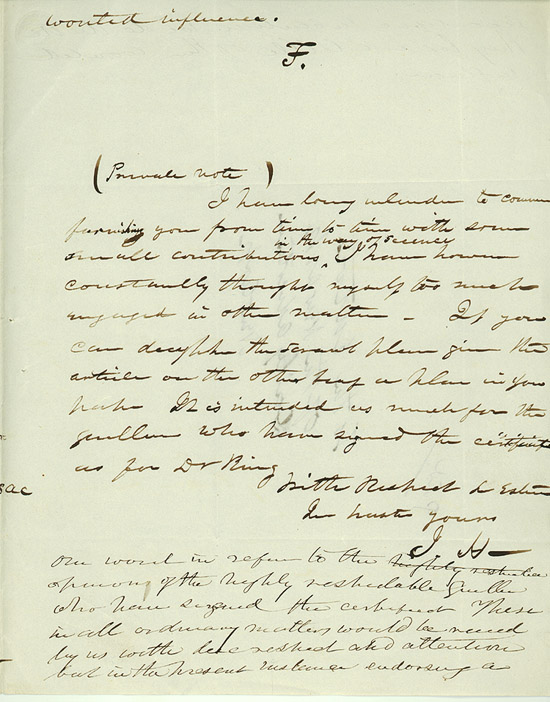 wonted influence.
F.
(Private note)
I have long intended to comm
furnishing you from time to time with some
in the way of science
small contributions I have however
constantly thought myself too much
engaged in other matters – If you
can decipher the scrawl please give the
article on the other leaf a place in your
It is intended as much for the
gentlemen who have signed the "certificate"
as for Dr King
With Respect & Esteem
In haste yours
J H–
sac
One word in refer to the highly respectable
opinions of the highly respectable gentlemen
who have signed the certificate These
in all ordinary matters would be received
by us with due respect and attention
but in the present instance endorsing a